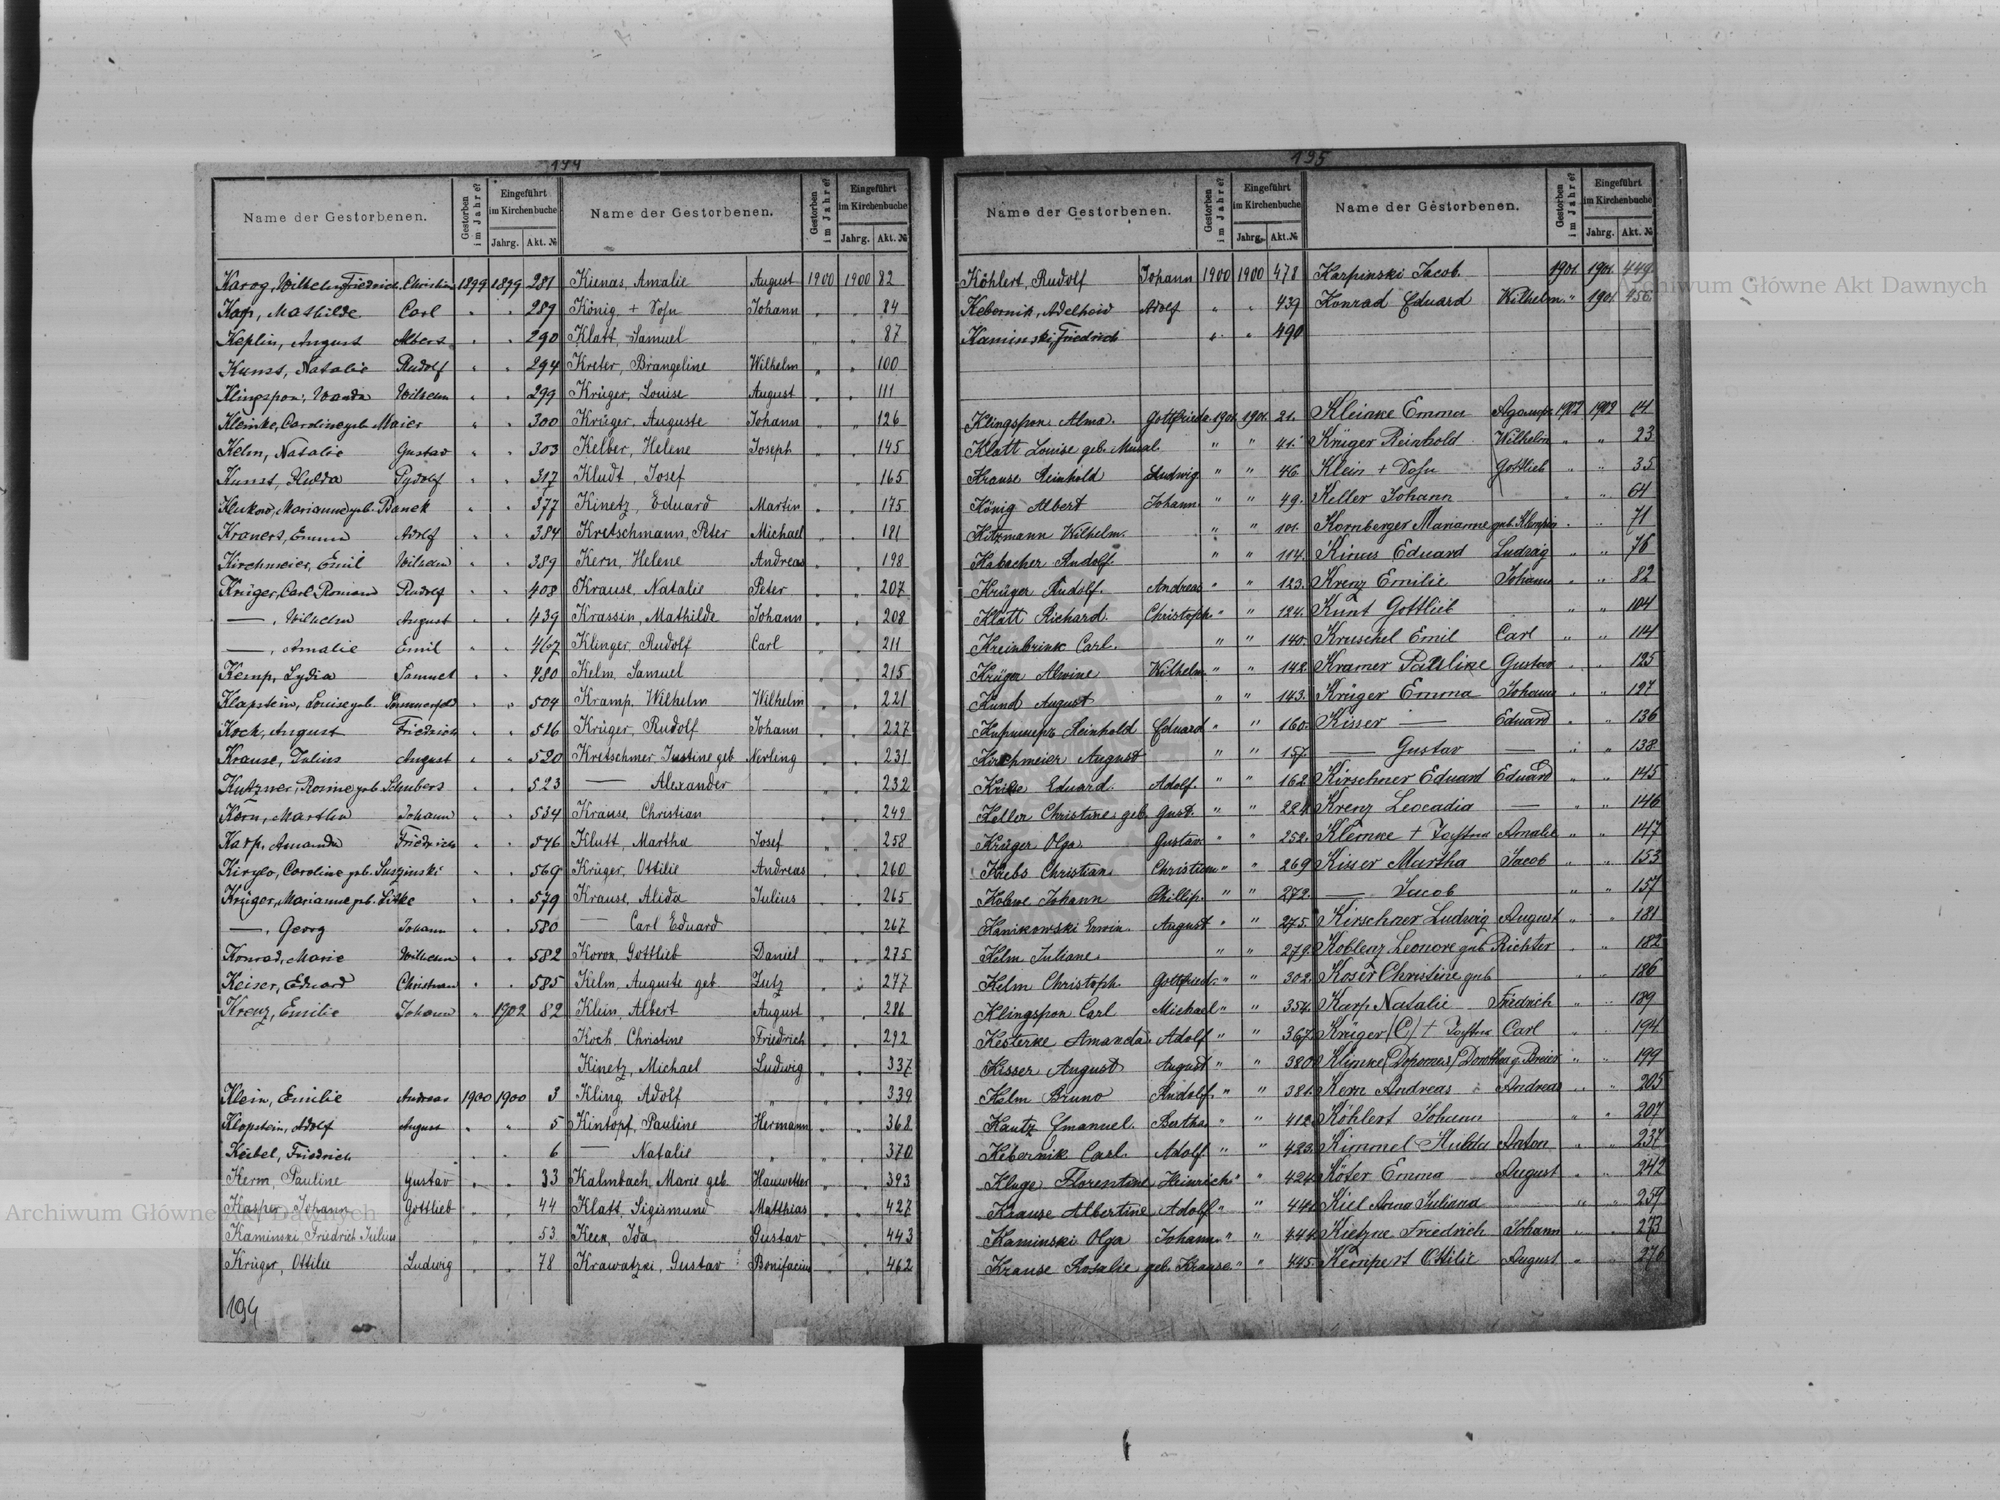 194
Name der Gestorbenen. Gestorben im Jahre? Eingeführt im Kirchenbuche Jahrg. Akt. №
Karog, Wilhelm Friedrich Christian 1899 1899 281
Karp, Mathilde Carl " " 289
Keplin, August Albert " " 290
Kunst, Natalie Rudolf " " 294
Klingspon, Wanda Wilhelm " " 299
Kleinke, Caroline geb. Maier " " 300
Kelm, Natalie Gustav " " 303
Kunst, Hulda " " 317
Klukow, Marianne geb. Banek " " 377
Emma Adolf " " 384
Kirchmeier, Emil Wilhelm " " 389
Krüger, Carl Roman Rudolf " " 408
—, Wilhelm August " " 439
—, Amalie Emil " " 467
Kemp, Lydia Samuel " " 480
Klapstein, Louise geb. " " 504
Kock, August Friedrich " " 516
Krause, Julius August " " 520
Kutzner, geb. Schubert " " 523
Korn, Martin Johann " " 534
Karp, Amanda Friedrich " " 546
Caroline geb. " " 569
Krüger, Marianne geb. Litke " " 579
—, Georg Johann " " 580
Konrad, Marie Wilhelm " " 582
Keiser, Eduard Christian " " 585
Krenz, Emilie Johann " 1902 82
Klein, Emilie Andreas 1900 1900 3
Klopstein, Adolf August " " 5
Keibel, Friedrich " " 6
Kerm, Pauline Gustav " " 33
Kasper, Johann Gottlieb " " 44
Kaminski Friedrich Julius " " 53
Krüger, Ottilie Ludwig " " 78
194
Name der Gestorbenen. Gestorben im Jahre? Eingeführt im Kirchenbuche Jahrg. Akt. №
Kienas, Amalie August 1900 1900 82
König, + Sohn Johann " " 84
Klatt, Samuel " " 87
Kreter, Brangeline Wilhelm " " 100
Krüger, Louise August " " 111
Krüger, Auguste Johann " " 126
Kelber, Helene Joseph " " 145
Kludt, Josef " " 165
Kinetz, Eduard Martin " " 175
Kretschmann, Peter Michael " " 181
Kern, Helene Andreas " " 198
Krause, Natalie Peter " " 207
Krassin, Mathilde Johann " " 208
Klinger, Rudolf Carl " " 211
Kelm, Samuel " " 215
Kramp, Wilhelm Wilhelm " " 221
Krüger, Rudolf Johann " " 227
Kretschmer, Justine geb. Nerling " " 231
— Alexander — " " 232
Krause, Christian " " 249
Klutt, Martha Josef " " 258
Krüger, Ottilie Andreas " " 260
Krause, Alida Julius " " 265
— Carl Eduard " " 267
Gottlieb Daniel " " 275
Kelm, Auguste geb. Lutz " " 277
Klein, Albert August " " 286
Koch, Christine Friedrich " " 292
Kinetz, Michael Ludwig " " 337
Kling, Adolf " " " 339
Kintopf, Pauline Hermann " " 368
— Natalie " " " 370
Kalmbach, Marie geb. Hauwetter " " 393
Klatt, Sigismund Matthias " " 427
Ida Gustav " " 443
Krawatzki, Gustav Bonifacius " " 462
195
Name der Gestorbenen. Gestorben im Jahre? Eingeführt im Kirchenbuche Jahrg. Akt. №
Köhlert, Rudolf Johann 1900 1900 478
Kebernik, Adelheid Adolf " " 439
Kaminski, Friedrich " " 490
Klingspon Alma Gottfried 1901 1901 21.
Klatt Louise geb. Musal. " " 41.
Krause Reinhold Ludwig " " 46.
König Albert Johann " " 49.
Kitzmann Wilhelm. " " 101.
Habacher Rudolf. " " 114.
Krüger Rudolf. Andreas " " 123.
Klatt Richard. Christoph " " 124.
Kreinbrink Carl. " " 140.
Krüger Alwine Wilhelm " " 142.
Kund August " " 143.
Reinhold Eduard " " 160.
Kirchmeier August " " 157.
Eduard. Adolf. " " 162.
Keller Christine geb. Gust. " " 224.
Krüger Olga Gustav " " 252.
Krebs Christian Christian " " 269
Johann Phillip. " " 272.
Kanikowski Erwin. August " " 275.
Kelm Juliane " " 279.
Kelm Christoph. Gottfried. " " 302.
Klingspon Carl Michael " " 354.
Kesterke Amanda. Adolf " " 367.
Kisser August August " " 380.
Kelm Bruno Rudolf. " " 381.
Kautz Emanuel. Bertha " " 412.
Kebernik Carl. Adolf " " 423.
Kluge Florentine Heinrich " " 424.
Krause Albertine Adolf " " 441.
Kaminski Olga Johann " " 444.
Krause Rosalie geb. Krause. " " 445.
Name der Gestorbenen. Gestorben im Jahre? Eingeführt im Kirchenbuche Jahrg. Akt. №
Karpinski Jacob. — 1901. 1901. 449.
Konrad Eduard Wilhelm " 1901 456.
Kleinke Emma 1902 1902 14
Krüger Reinhold Wilhelm " " 23
Klein + Sohn Gottlieb " " 35
Keller Johann " " 64
Kornberger Marianne geb. Klempin " " 71
Eduard Ludwig " " 76
Krenz Emilie Johann " " 82
Kunt Gottlieb " " 104
Kruschel Emil Carl " " 114
Kramer Pauline Gustav " " 125
Krüger Emma Johann " " 127
Kisser — Eduard " " 136
— Gustav — " " 138
Kirschner Eduard Eduard " " 145
Krenz Leocadia — " " 146
Klemke + Tochter Amalie " " 147
Kisser Martha Jacob " " 153
— Jacob " " 157
Kirschner Ludwig August " " 181
Koblenz Leonore geb Richter " " 182
Koser Christine geb " " 186
Karp Natalie Friedrich " " 189
Krüger (C) + Tochter Carl " " 194
" " 199
Kern Andreas Andreas " " 205
Köhlert Johann " " 207
Kimmel Hulda Anton " " 237
Köter Emma August " " 242
Kiel Anna Juliana " " 259
Friedrich Johann " " 273
Kempert Ottilie August " " 276
Archiwum Główne Akt Dawnych
Archiwum Główne Akt Dawnych